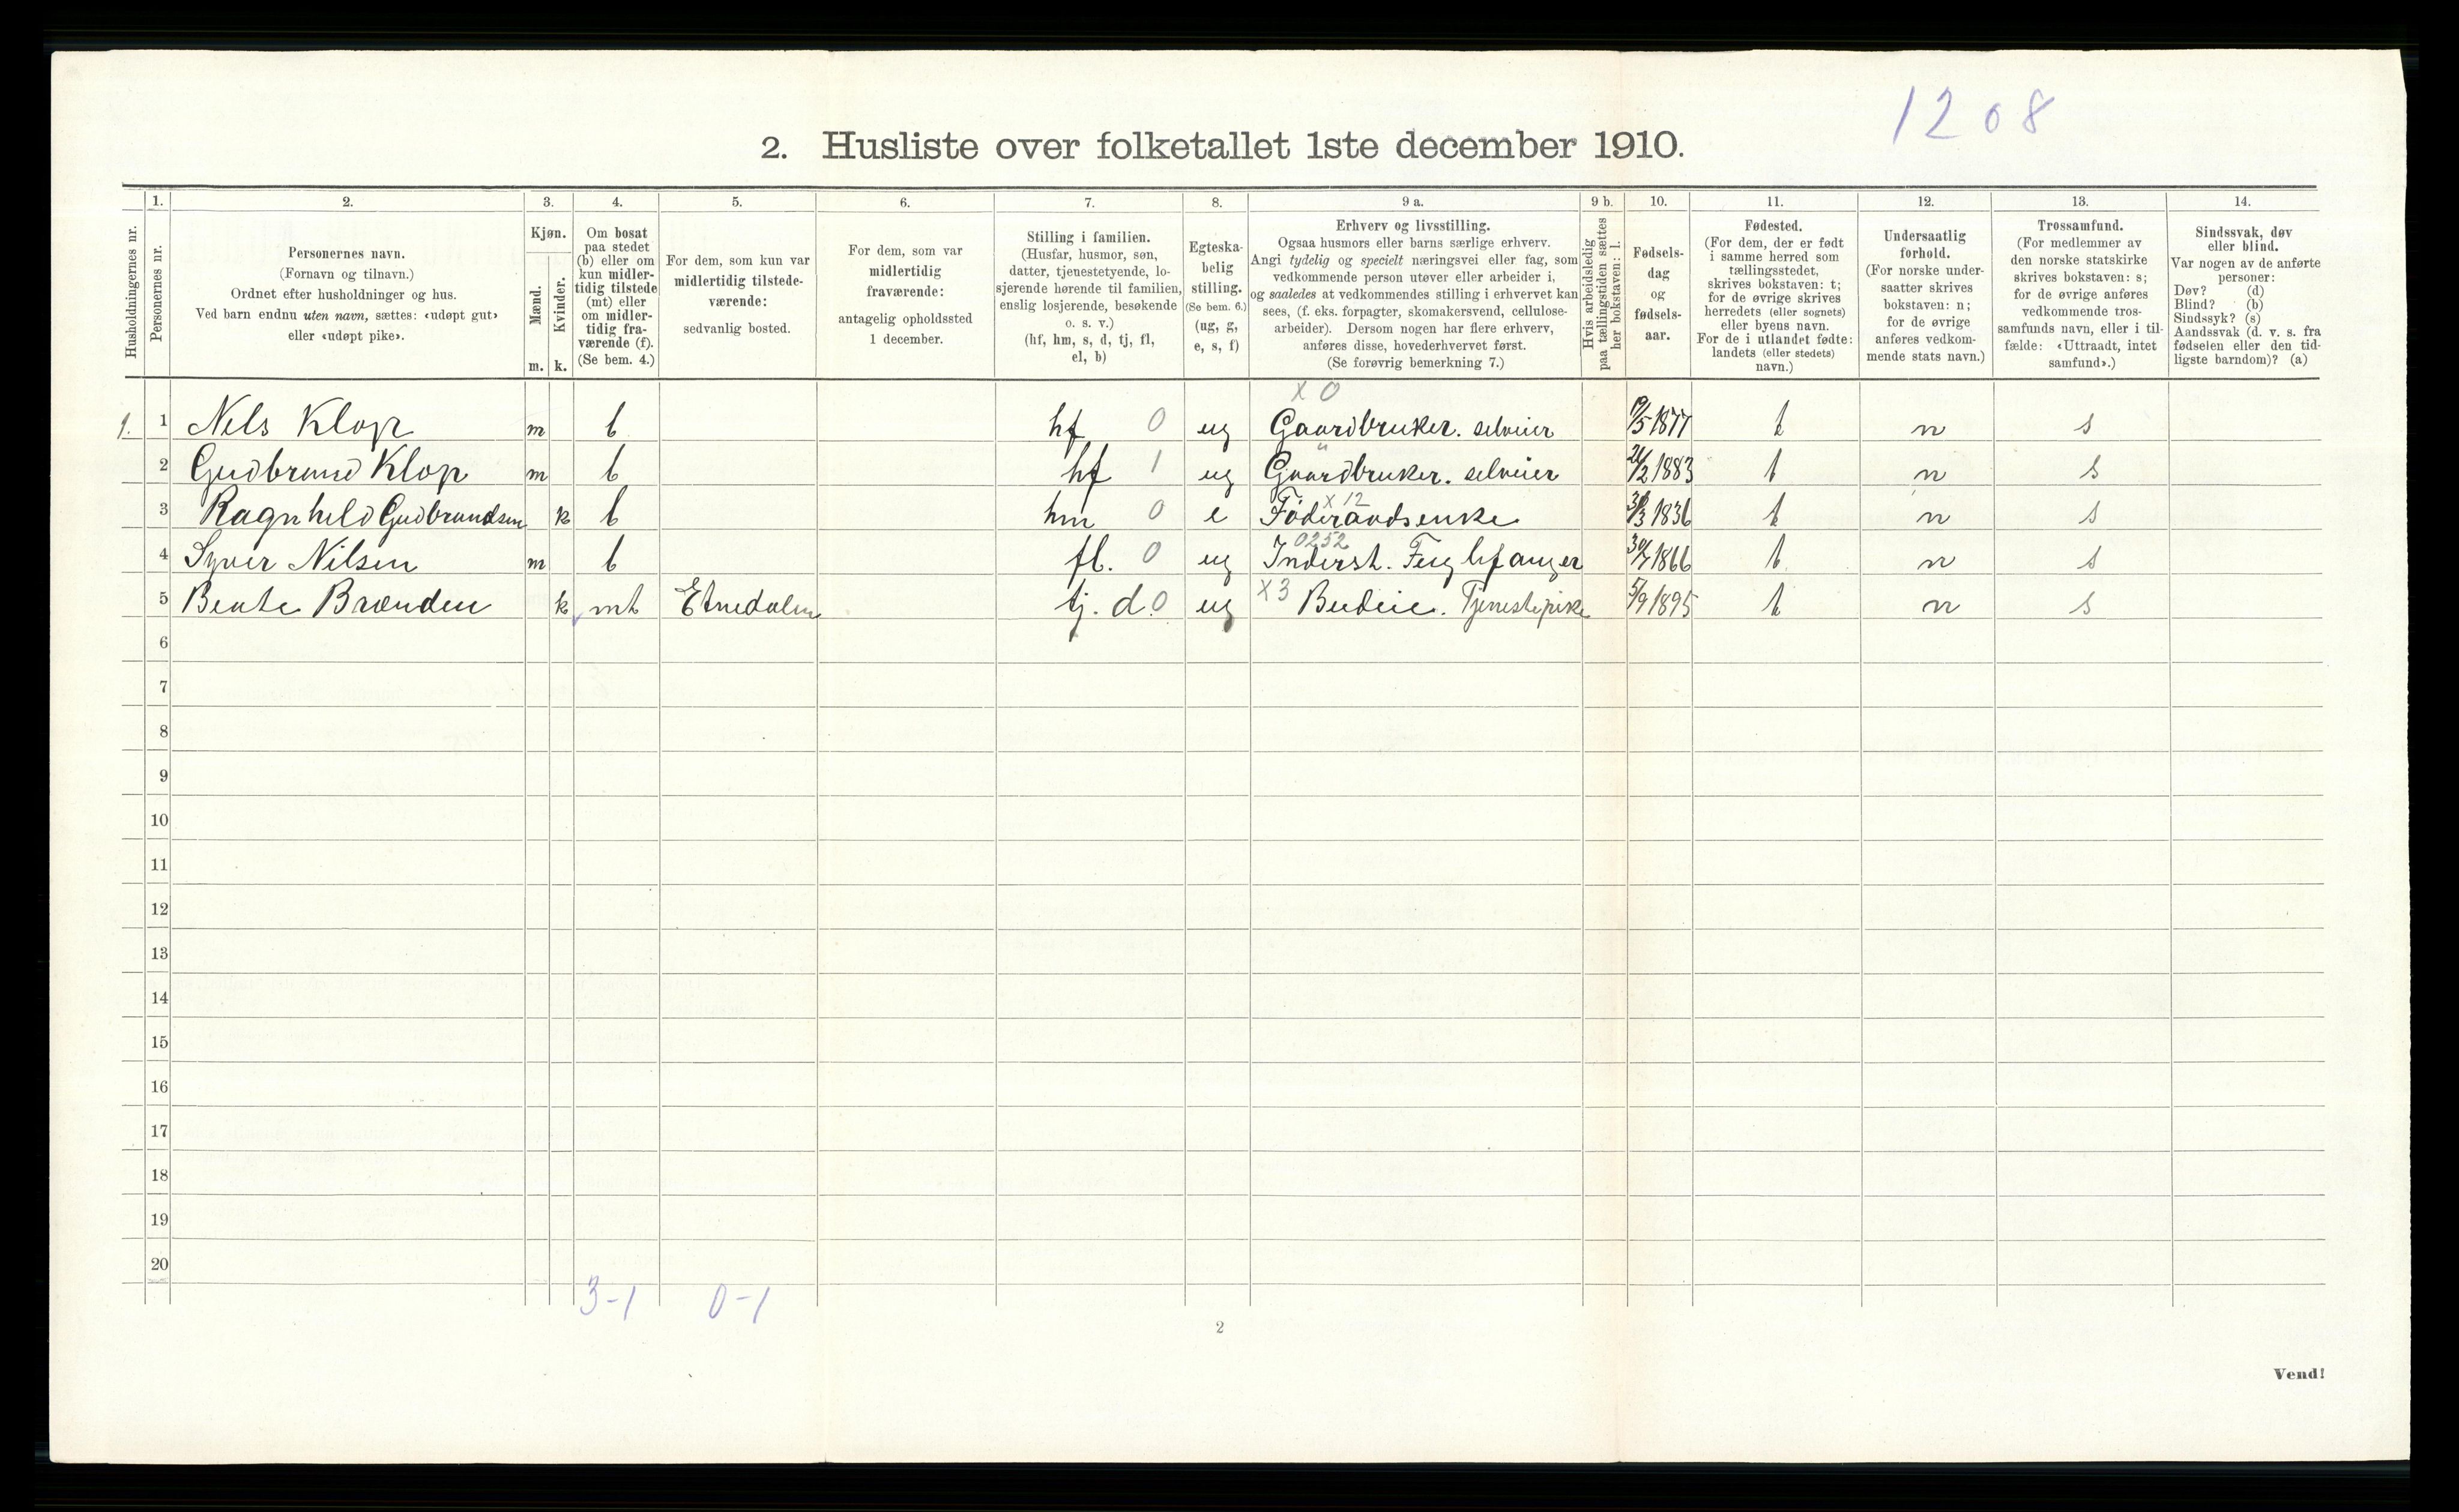 1208
2. Husliste over folketallet 1ste december 1910.
Husholdningernes nr.
1.
Personernes nr.
2.
Personernes navn.
(Fornavn og tilnavn.)
Ordnet efter husholdninger og hus.
Ved barn endnu uten navn, sættes: «udøpt gut»
eller «udøpt pike».
3.
Kjøn.
Mænd.
Kvinder.
m. k.
4.
Om bosat
paa stedet
(b) eller om
kun midler-
tidig tilstede
(mt) eller
om midler-
tidig fra-
værende (f).
(Se bem. 4.)
5.
For dem, som kun var
midlertidig tilstede-
værende:
sedvanlig bosted.
6.
For dem, som var
midlertidig
fraværende:
antagelig opholdssted
1 december.
7.
Stilling i familien.
(Husfar, husmor, søn,
datter, tjenestetyende, lo-
sjerende hørende til familien,
enslig losjerende, besøkende
o. s. v.)
(hf, hm, s, d, tj, fl,
el, b)
8.
Egteska-
belig
stilling.
(Se bem. 6.)
(ug, g,
e, s, f)
9 a.
Erhverv og livsstilling.
Ogsaa husmors eller barns særlige erhverv.
Angi tydelig og specielt næringsvei eller fag, som
vedkommende person utøver eller arbeider i,
og saaledes at vedkommendes stilling i erhvervet kan
sees, (f. eks. forpagter, skomakersvend, cellulose-
arbeider). Dersom nogen har flere erhverv,
anføres disse, hovederhvervet først.
(Se forøvrig bemerkning 7.)
9 b.
Hvis arbeidsledig
paa tællingstiden sættes
her bokstaven: l.
10.
Fødsels-
dag
og
fødsels-
aar.
11.
Fødested.
(For dem, der er født
i samme herred som
tællingsstedet,
skrives bokstaven: t;
for de øvrige skrives
herredets (eller sognets)
eller byens navn.
For de i utlandet fødte:
landets (eller stedets)
navn.)
12.
Undersaatlig
forhold.
(For norske under-
saatter skrives
bokstaven: n;
for de øvrige
anføres vedkom-
mende stats navn.)
13.
Trossamfund.
(For medlemmer av
den norske statskirke
skrives bokstaven: s;
for de øvrige anføres
vedkommende tros-
samfunds navn, eller i til-
fælde: «Uttraadt, intet
samfund».)
14.
Sindssvak, døv
eller blind.
Var nogen av de anførte
personer:
Døv? (d)
Blind? (b)
Sindssyk? (s)
Aandssvak (d. v. s. fra
fødselen eller den tid-
ligste barndom)? (a)
X 0
1. 1 Nels Klop m b hf 0 ug Gaardbruker. selveier 1877 t n s
"
2 Gudbrand Klop m b hf 1 ug Gaardbruker. selveier 1883 t n s
X 12
3 Ragnhild Gudbrandsen k b hm 0 e Föderaadsenke 1836 t n s
0252
4 Syver Nilsen m b fl. 0 ug Inderst. Fuglefanger 1866 t n s
5 Beate Brænden k mt Etnedalen tj. d. 0 ug X3 Budeie. Tjenestepike 5/9 1895 t n s
6
7
8
9
10
11
12
13
14
15
16
17
18
19
20
3-1 0-1
2
Vend!